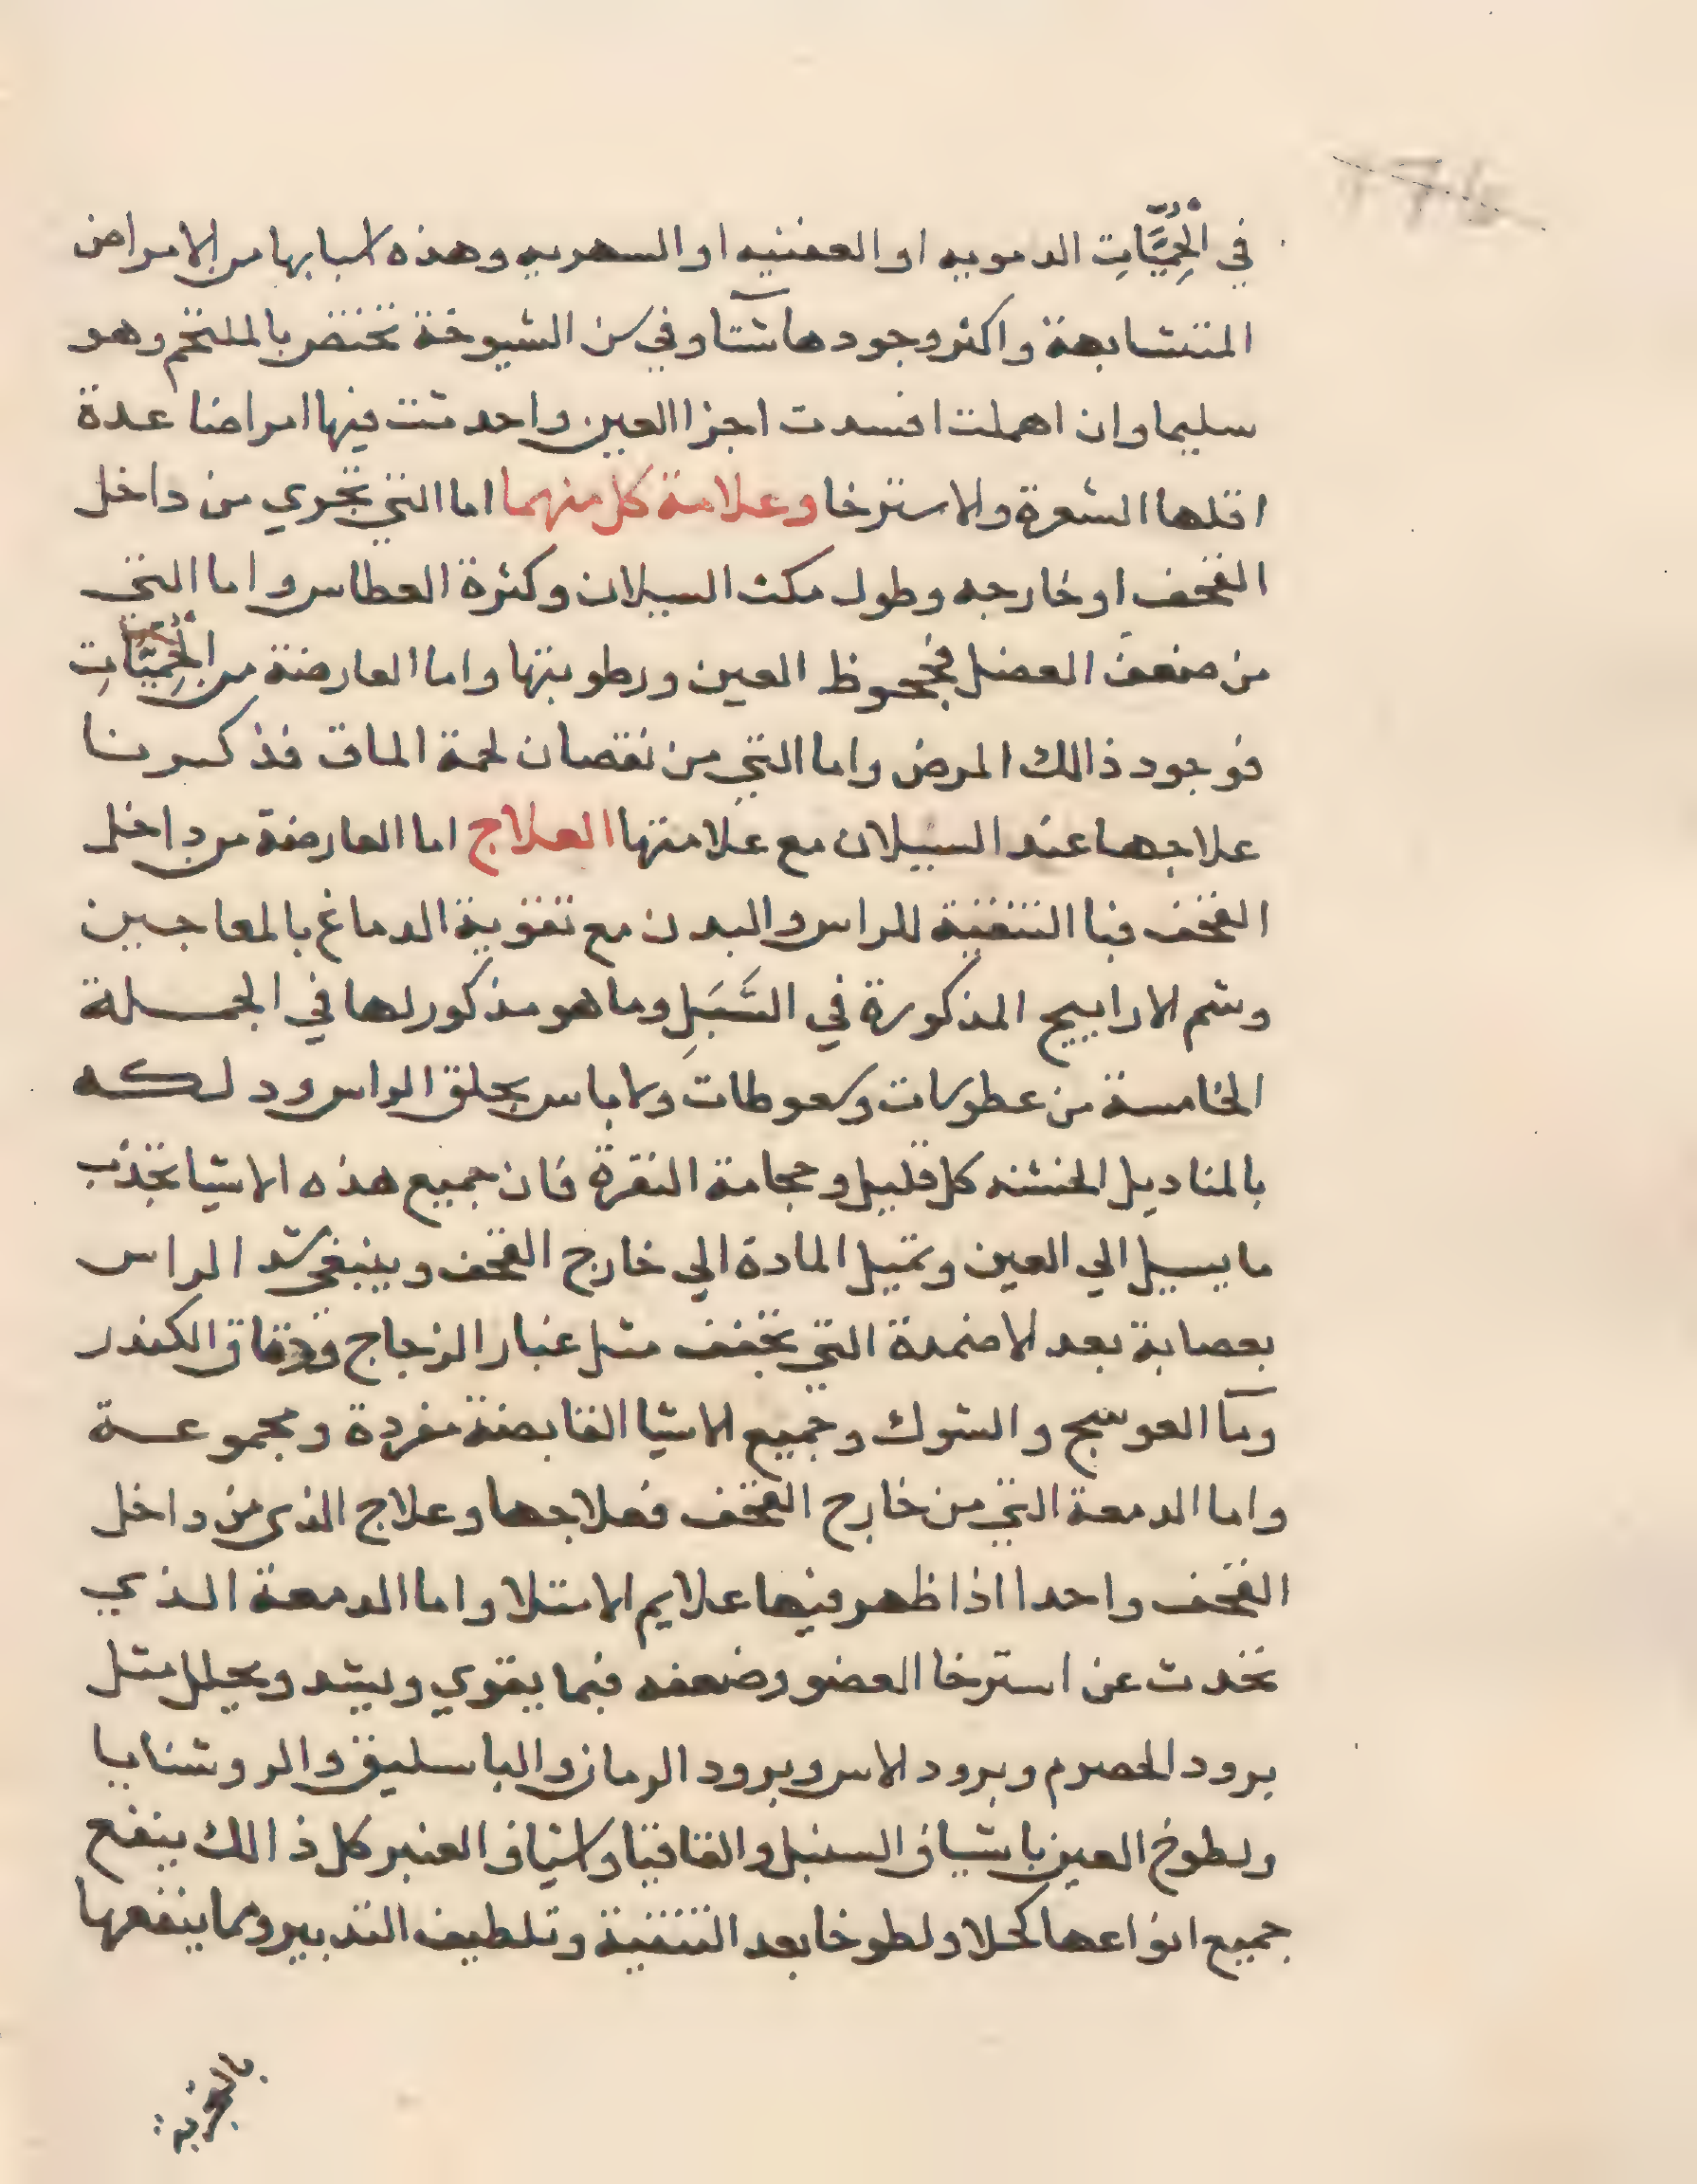 في الحُمِيَّاتِ الدمويه او العفنيه او السهريه وهذه اسبابها من الامراض
المتشابهة واكثر وجودها شتآ وفي سن الشيوخة تختص بالملتحم وهو
سليما وان اهملت افسدت اجزا العين واحدثت فيها امراضا عدة
اقلها الشعرة والاسترخا وعلامة كل منهما اما التي تجري من داخل
القحف او خارجه وطول مكث السيلان وكثرة العطاس واما التي
من ضعف العضل فجحوظ العين ورطوبتها واما العارضة من الحُمِيَّاتِ
فوجود ذالك المرض واما التي من نقصان لحمة الماق فذكرنا
علاجها عند السيلان مع علامتها العلاج اما العارضة من داخل
القحف فبا التنقية للراس والبدن مع تقوية الدماغ بالمعاجين
وشم الاراييح المذكورة في السَّبَلِ وما هو مذكور لها في الجملة
الخامسة من عطوسات وسعوطات ولا باس بحلق الراس ودلكه
بالمناديل الخشنه كل قليل وحجامة النقرة فان جميع هذه الاشيا تجذب
ما يسيل الي العين وتميل المادة الي خارج القحف وينبغي شد الراس
بعصابة بعد الاضمدة التي تجفف مثل غبار الزجاج ودقاق الكندر
ومآ العوسج والشوك وجميع الاشيا القابضة مفردة ومجموعة
واما الدمعة التي من خارج القحف فعلاجها وعلاج الذي من داخل
القحف واحدا اذا ظهر فيها علايم الامتلا واما الدمعة الذي
تحدث عن استرخا العضو وضعفه فبما يقوي ويشد ويحلل مثل
برود الحصرم وبرود الاس وبرود الرمان والباسليق والروشنايا
ولطوخ العين باشياف السنبل والقاقيا واشياف العنبر كل ذالك ينفع
جميع انواعها كحلا ولطوخا بعد التنقية وتلطيف التدبير ومما ينفعها
بالتجربه